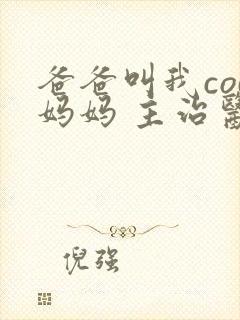 爸爸叫我co
妈妈 主治
倪强